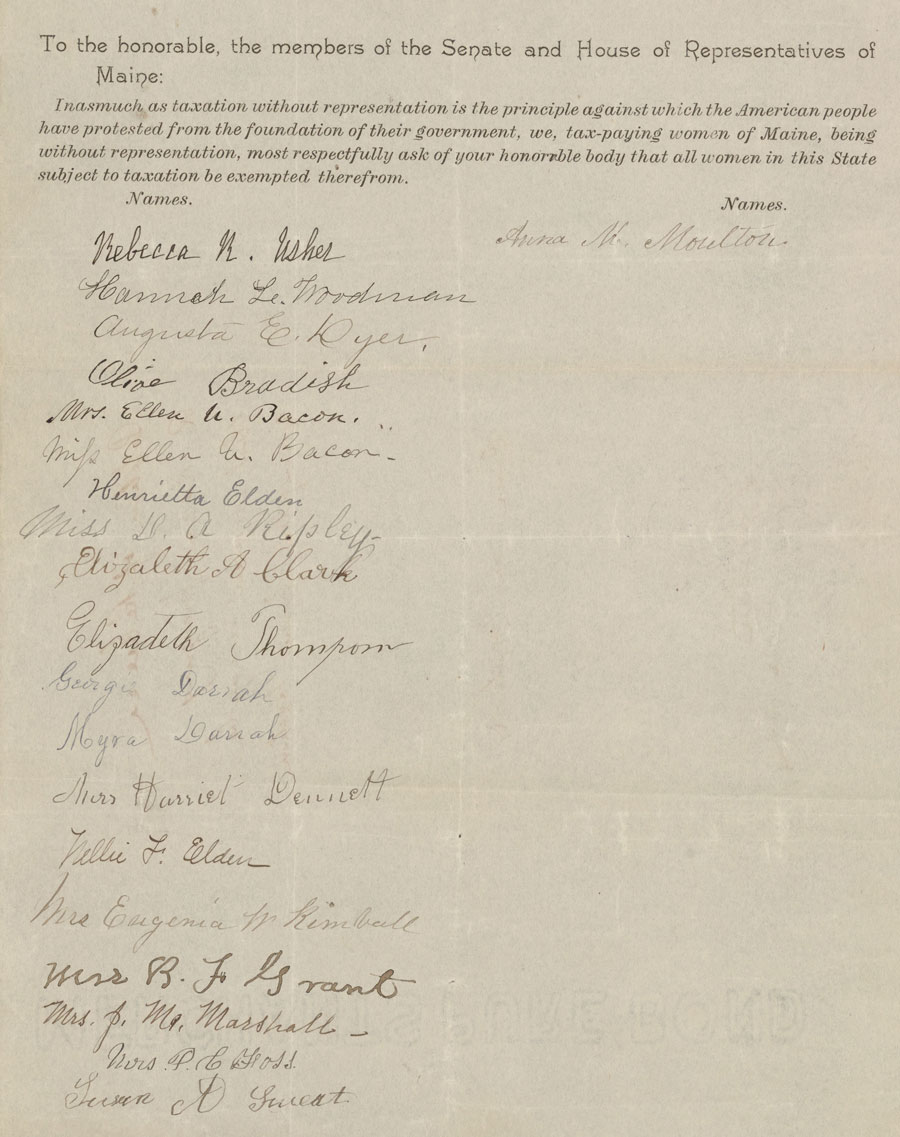 To the honorable, the members of the Senate and House of Representatives of
Maine:
Inasmuch as taxation without representation is the principle against which the American people
have protested from the foundation of their government, we, tax-paying women of Maine, being
without representation, most respectfully ask of your honorable body that all women in this State
subject to taxation be exempted therefrom.
Names.
Rebecca R. Usher
Hannah L. Woodman
Augusta E. Dyer.
Olive Bradish
Mrs. Ellen U. Bacon.
Miss Ellen U. Bacon
Henrietta Elden
Miss D. A Ripley
Elizabeth A Clark
Elizabeth Thompson
Georgie Darrah
Myra Darrah
Mrs Harriet Dennett
Nellie F. Elden
Mrs Eugenia W Kimball
Mrs B. F Grant
Mrs. J. M. Marshall
Mrs P. C Foss
Susan A Sweat
Names.
Anna M. Moulton.